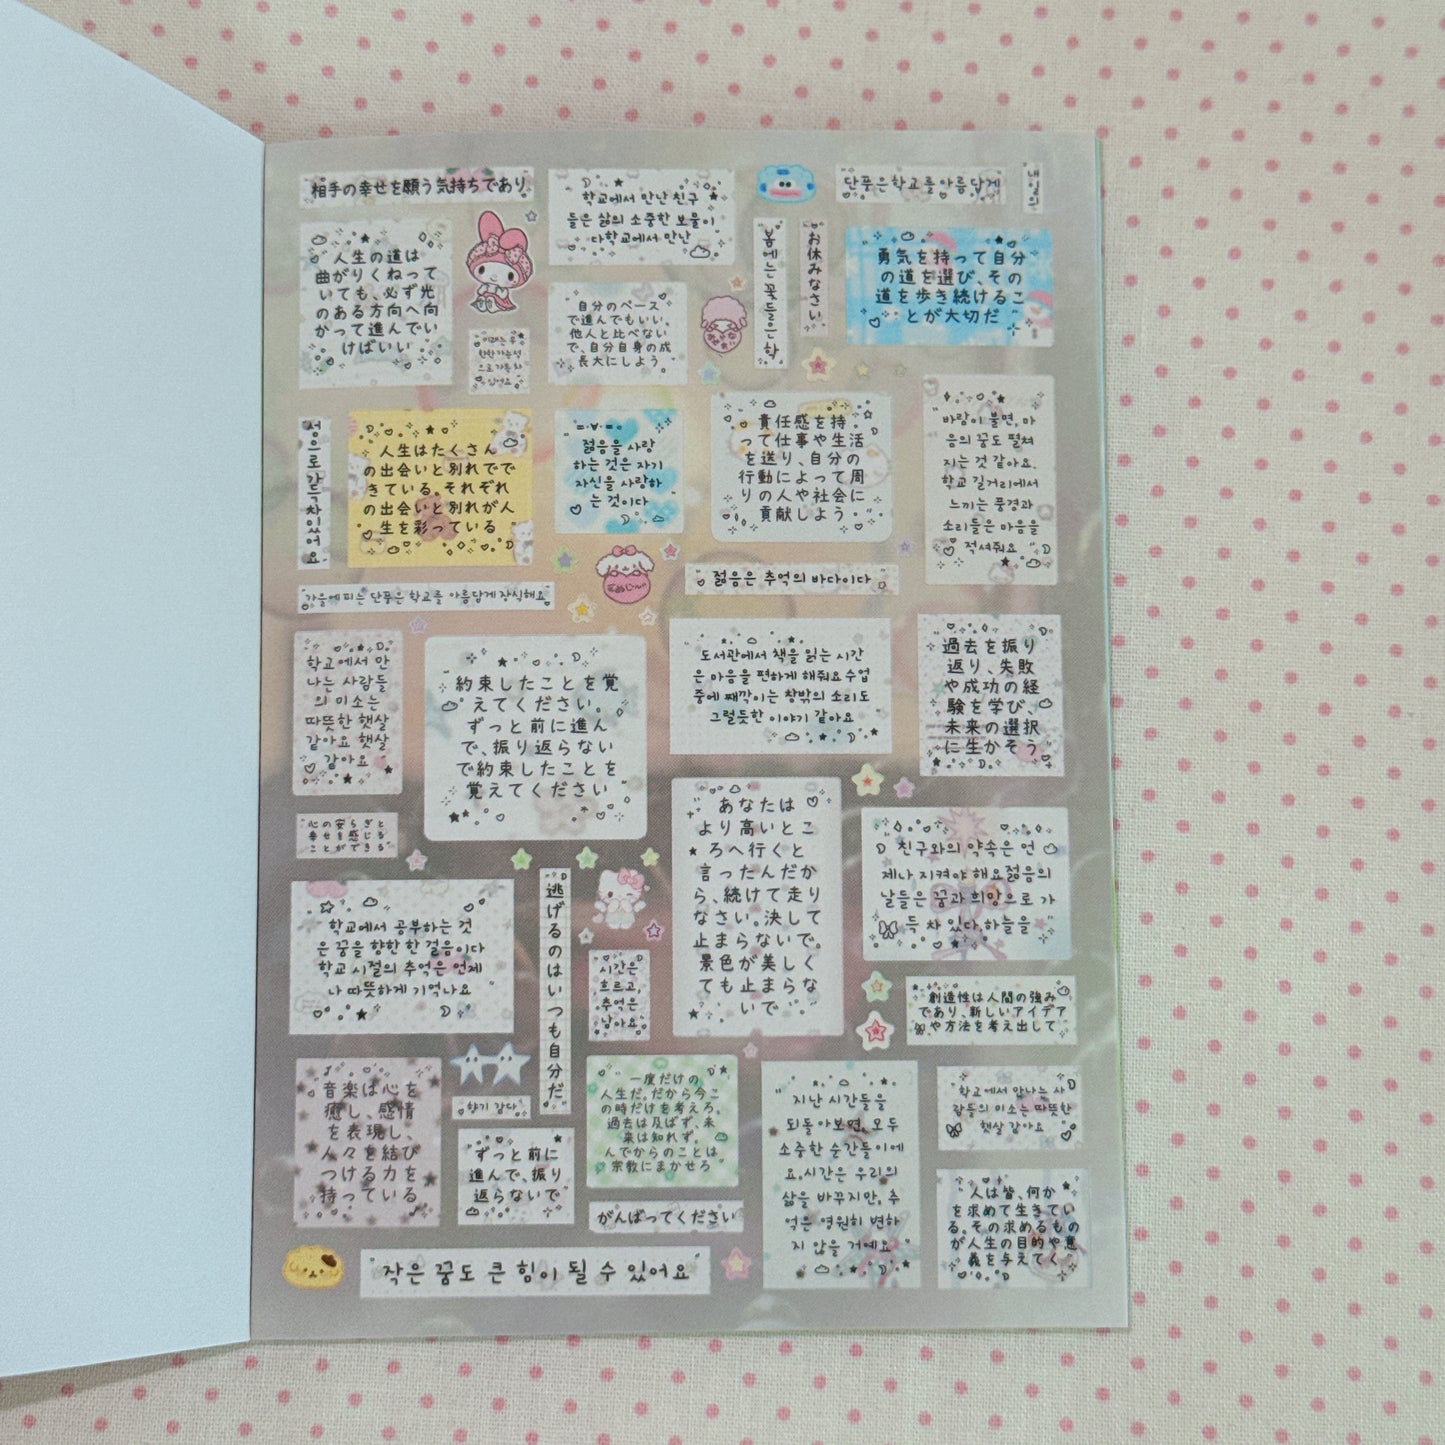 相手の幸せを願う気持ちであり
학교에서 만난 친구
들은 삶의 소중한 보물이
다학교에서 만난
단풍은학교를아름답게
人生の道は
曲がりくねって
いても、必ず光
のある方向へ向
かって進んでい
けばいい
自分のペース
で進んでもいい、
他人と比べない
で、自分自身の成
長大にしよう
봄에는꽃들은학
お休みなさい
勇気を持って自分
の道を選び、その
道を歩き続けるこ
とが大切だ
미래는무
한한가능성
으로가득차
있어요
성으로가득차있어요
人生はたくさん
の出会いと別れでで
きている。それぞれ
の出会いと別れが人
生を彩っている
젊음을 사랑
하는 것은 자기
자신을 사랑하
는 것이다
責任感を持
って仕事や生活
を送り、自分の
行動によって周
りの人や社会に
貢献しよう
바람이 불면, 마
음의 꿈도 펼쳐
지는 것 같아요.
학교 길거리에서
느끼는 풍경과
소리들은 마음을
적셔줘요
가을에 피는 단풍은 학교를 아름답게 장식해요
젊음은 추억의 바다이다
학교에서 만
나는 사람들
의 미소는
따뜻한 햇살
같아요 햇살
같아요
約束したことを覚
えてください。
ずっと前に進ん
で、振り返らない
で約束したことを
覚えてください
도서관에서 책을 읽는 시간
은 마음을 편하게 해줘요 수업
중에 째깍이는 창밖의 소리도
그럴듯한 이야기 같아요
過去を振り
返り、失敗
や成功の経
験を学び、
未来の選択
に生かそう
心の安らぎと
幸せを感じる
ことができる
あなたは
より高いとこ
ろへ行くと
言ったんだか
ら、続けて走り
なさい。決して
止まらないで。
景色が美しく
ても止まらな
いで
친구와의 약속은 언
제나 지켜야 해요젊음의
날들은 꿈과 희망으로 가
득 차 있다.하늘을
학교에서 공부하는 것
은 꿈을 향한 한 걸음이다
학교 시절의 추억은 언제
나 따뜻하게 기억나요
逃げるのはいつも自分だ
시간은
흐르고,
추억은
남아요
創造性は人間の強み
であり、新しいアイデア
や方法を考え出して
音楽は心を
癒し、感情
を表現し、
人々を結び
つける力を
持っている
향기 감다
ずっと前に
進んで、振り
返らないで
一度だけの
人生だ。だから今こ
の時だけを考えろ。
過去は及ばず、未
来は知れず。
んでからのことは
宗教にまかせろ
がんばってください
지난 시간들을
되돌아보면, 모두
소중한 순간들이에
요.시간은 우리의
삶을 바꾸지만, 추
억은 영원히 변하
지 않을 거예요
학교에서 만나는 사
람들의 미소는 따뜻한
햇살 같아요
人は皆、何か
を求めて生きてい
る。その求めるもの
が人生の目的や意
義を与えてく
작은 꿈도 큰 힘이 될 수 있어요